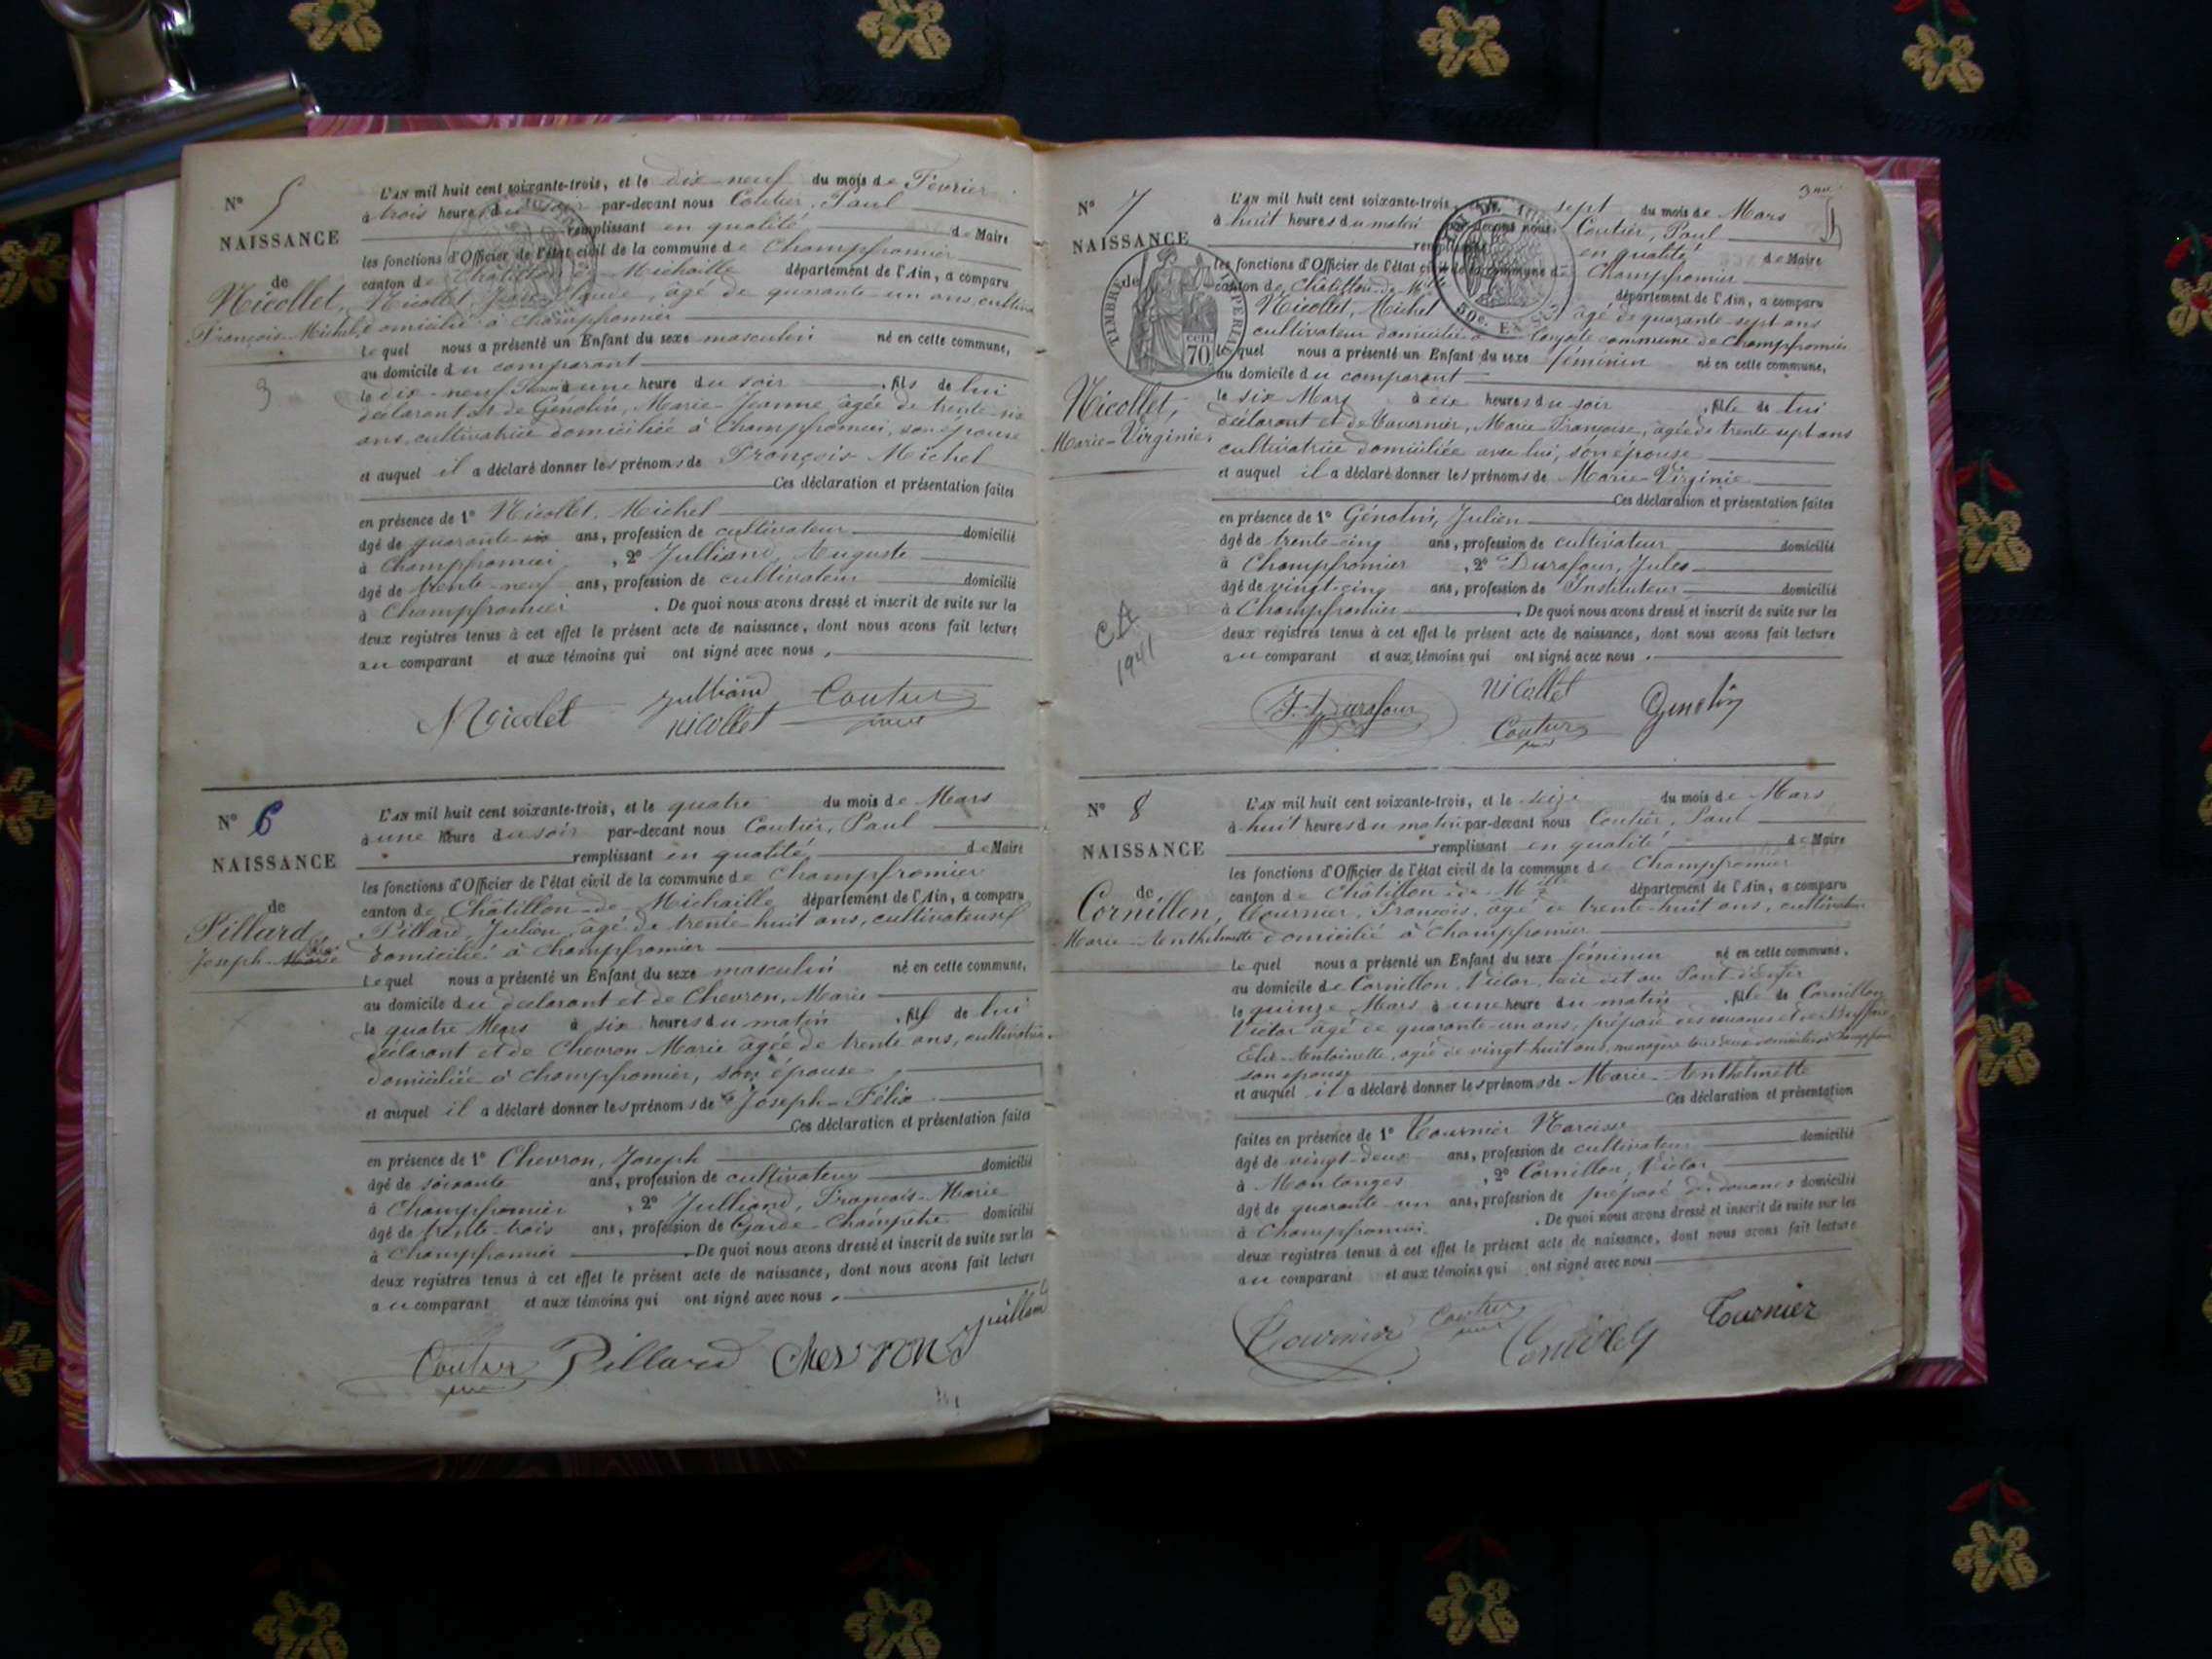 N° 5
NAISSANCE
de
Nicollet,
François-Michel
3
L'AN mil huit cent soixante-trois, et le dix-neuf du mois de Février
à trois heure du soir par-devant nous Coutier, Paul
remplissant en qualité de Maire
les fonctions d'Officier de l'état civil de la commune de Champfromier
canton de Châtillon de Michaille département de l'Ain, a comparu
Nicollet, Claude, âgé de quarante-un ans, cultiva
domicilié à Champfromier
lequel nous a présenté un Enfant du sexe masculin né en cette commune,
au domicile du comparant
le dix-neuf à une heure du soir, fils de lui
déclarant et de Génolin, Marie-Jeanne âgée de trente-six
ans, cultivatrice domiciliée à Champfromier, son épouse
et auquel il a déclaré donner les prénoms de François Michel
Ces déclaration et présentation faites
en présence de 1° Nicollet, Michel
âgé de quarante ans, profession de cultivateur domicilié
à Champfromier, 2° Julliand, Auguste
âgé de trente-neuf ans, profession de cultivateur domicilié
à Champfromier. De quoi nous avons dressé et inscrit de suite sur les
deux registres tenus à cet effet le présent acte de naissance, dont nous avons fait lecture
au comparant et aux témoins qui ont signé avec nous.
Nicolet Julliand Coutier
nicollet
N° 6
NAISSANCE
de
Pillard
Joseph-Marie
L'AN mil huit cent soixante-trois, et le quatre du mois de Mars
à une heure du soir par-devant nous Coutier, Paul
remplissant en qualité de Maire
les fonctions d'Officier de l'état civil de la commune de Champfromier
canton de Châtillon-de-Michaille département de l'Ain, a comparu
Pillard, Julien, âgé de trente-huit ans, cultivateur
domicilié à Champfromier
lequel nous a présenté un Enfant du sexe masculin né en cette commune,
au domicile du déclarant et de Chevron, Marie
le quatre Mars à six heures du matin, fils de lui
déclarant et de Chevron Marie âgée de trente ans, cultivatrice
domiciliée à Champfromier, son épouse
et auquel il a déclaré donner les prénoms de Joseph-Félix
Ces déclaration et présentation faites
en présence de 1° Chevron, Joseph
âgé de soixante ans, profession de cultivateur domicilié
à Champfromier, 2° Julliand, François-Marie
âgé de trente-trois ans, profession de Garde-Champêtre domicilié
à Champfromier. De quoi nous avons dressé et inscrit de suite sur les
deux registres tenus à cet effet le présent acte de naissance, dont nous avons fait lecture
au comparant et aux témoins qui ont signé avec nous.
Coutier Pillard Chevron
N° 7
NAISSANCE
de
TIMBRE IMPERIAL
70
Nicollet,
Marie-Virginie
CA
1941
L'AN mil huit cent soixante-trois, sept du mois de Mars
à huit heures du matin par-devant nous Coutier, Paul
en qualité de Maire
les fonctions d'Officier de l'état civil de la commune de Champfromier
canton de Châtillon-de-M département de l'Ain, a comparu
Nicollet, Michel âgé de quarante-sept ans
cultivateur domicilié à commune de Champfromier
lequel nous a présenté un Enfant du sexe féminin né en cette commune,
au domicile du comparant
le six Mars à six heures du soir, fille de lui
déclarant et de Tournier, Marie-Françoise, âgée de trente-sept ans
cultivatrice domiciliée avec lui, son épouse
et auquel il a déclaré donner les prénoms de Marie-Virginie
Ces déclaration et présentation faites
en présence de 1° Génolin, Julien
âgé de trente-cinq ans, profession de cultivateur domicilié
à Champfromier, 2° Durafour, Jules
âgé de vingt-cinq ans, profession de Instituteur domicilié
à Champfromier. De quoi nous avons dressé et inscrit de suite sur les
deux registres tenus à cet effet le présent acte de naissance, dont nous avons fait lecture
au comparant et aux témoins qui ont signé avec nous.
J. Durafour nicollet Genolin
Coutier
N° 8
NAISSANCE
de
Cornillon,
Marie-Anthelmette
L'AN mil huit cent soixante-trois, et le seize du mois de Mars
à huit heures du matin par-devant nous Coutier, Paul
remplissant en qualité de Maire
les fonctions d'Officier de l'état civil de la commune de Champfromier
canton de Châtillon-de-M département de l'Ain, a comparu
Tournier, François, âgé de trente-huit ans, cultivateur
domicilié à Champfromier
lequel nous a présenté un Enfant du sexe féminin né en cette commune.
au domicile de Cornillon, Victor, lieu dit au Pont-d'Enfer
le quinze Mars à une heure du matin, fille de Cornillon
Victor âgé de quarante-un ans, préposé des douanes et de
Antoinette, âgée de vingt-huit ans, ménagère tous deux domiciliés à
son épouse
et auquel il a déclaré donner les prénoms de Marie-Anthelmette
Ces déclaration et présentation
faites en présence de 1° Tournier Narcisse
âgé de vingt-deux ans, profession de cultivateur domicilié
à Montanges, 2° Cornillon, Victor
âgé de quarante-un ans, profession de préposé des douanes domicilié
à Champfromier. De quoi nous avons dressé et inscrit de suite sur les
deux registres tenus à cet effet le présent acte de naissance, dont nous avons fait lecture
au comparant et aux témoins qui ont signé avec nous
Tournier Coutier Tournier